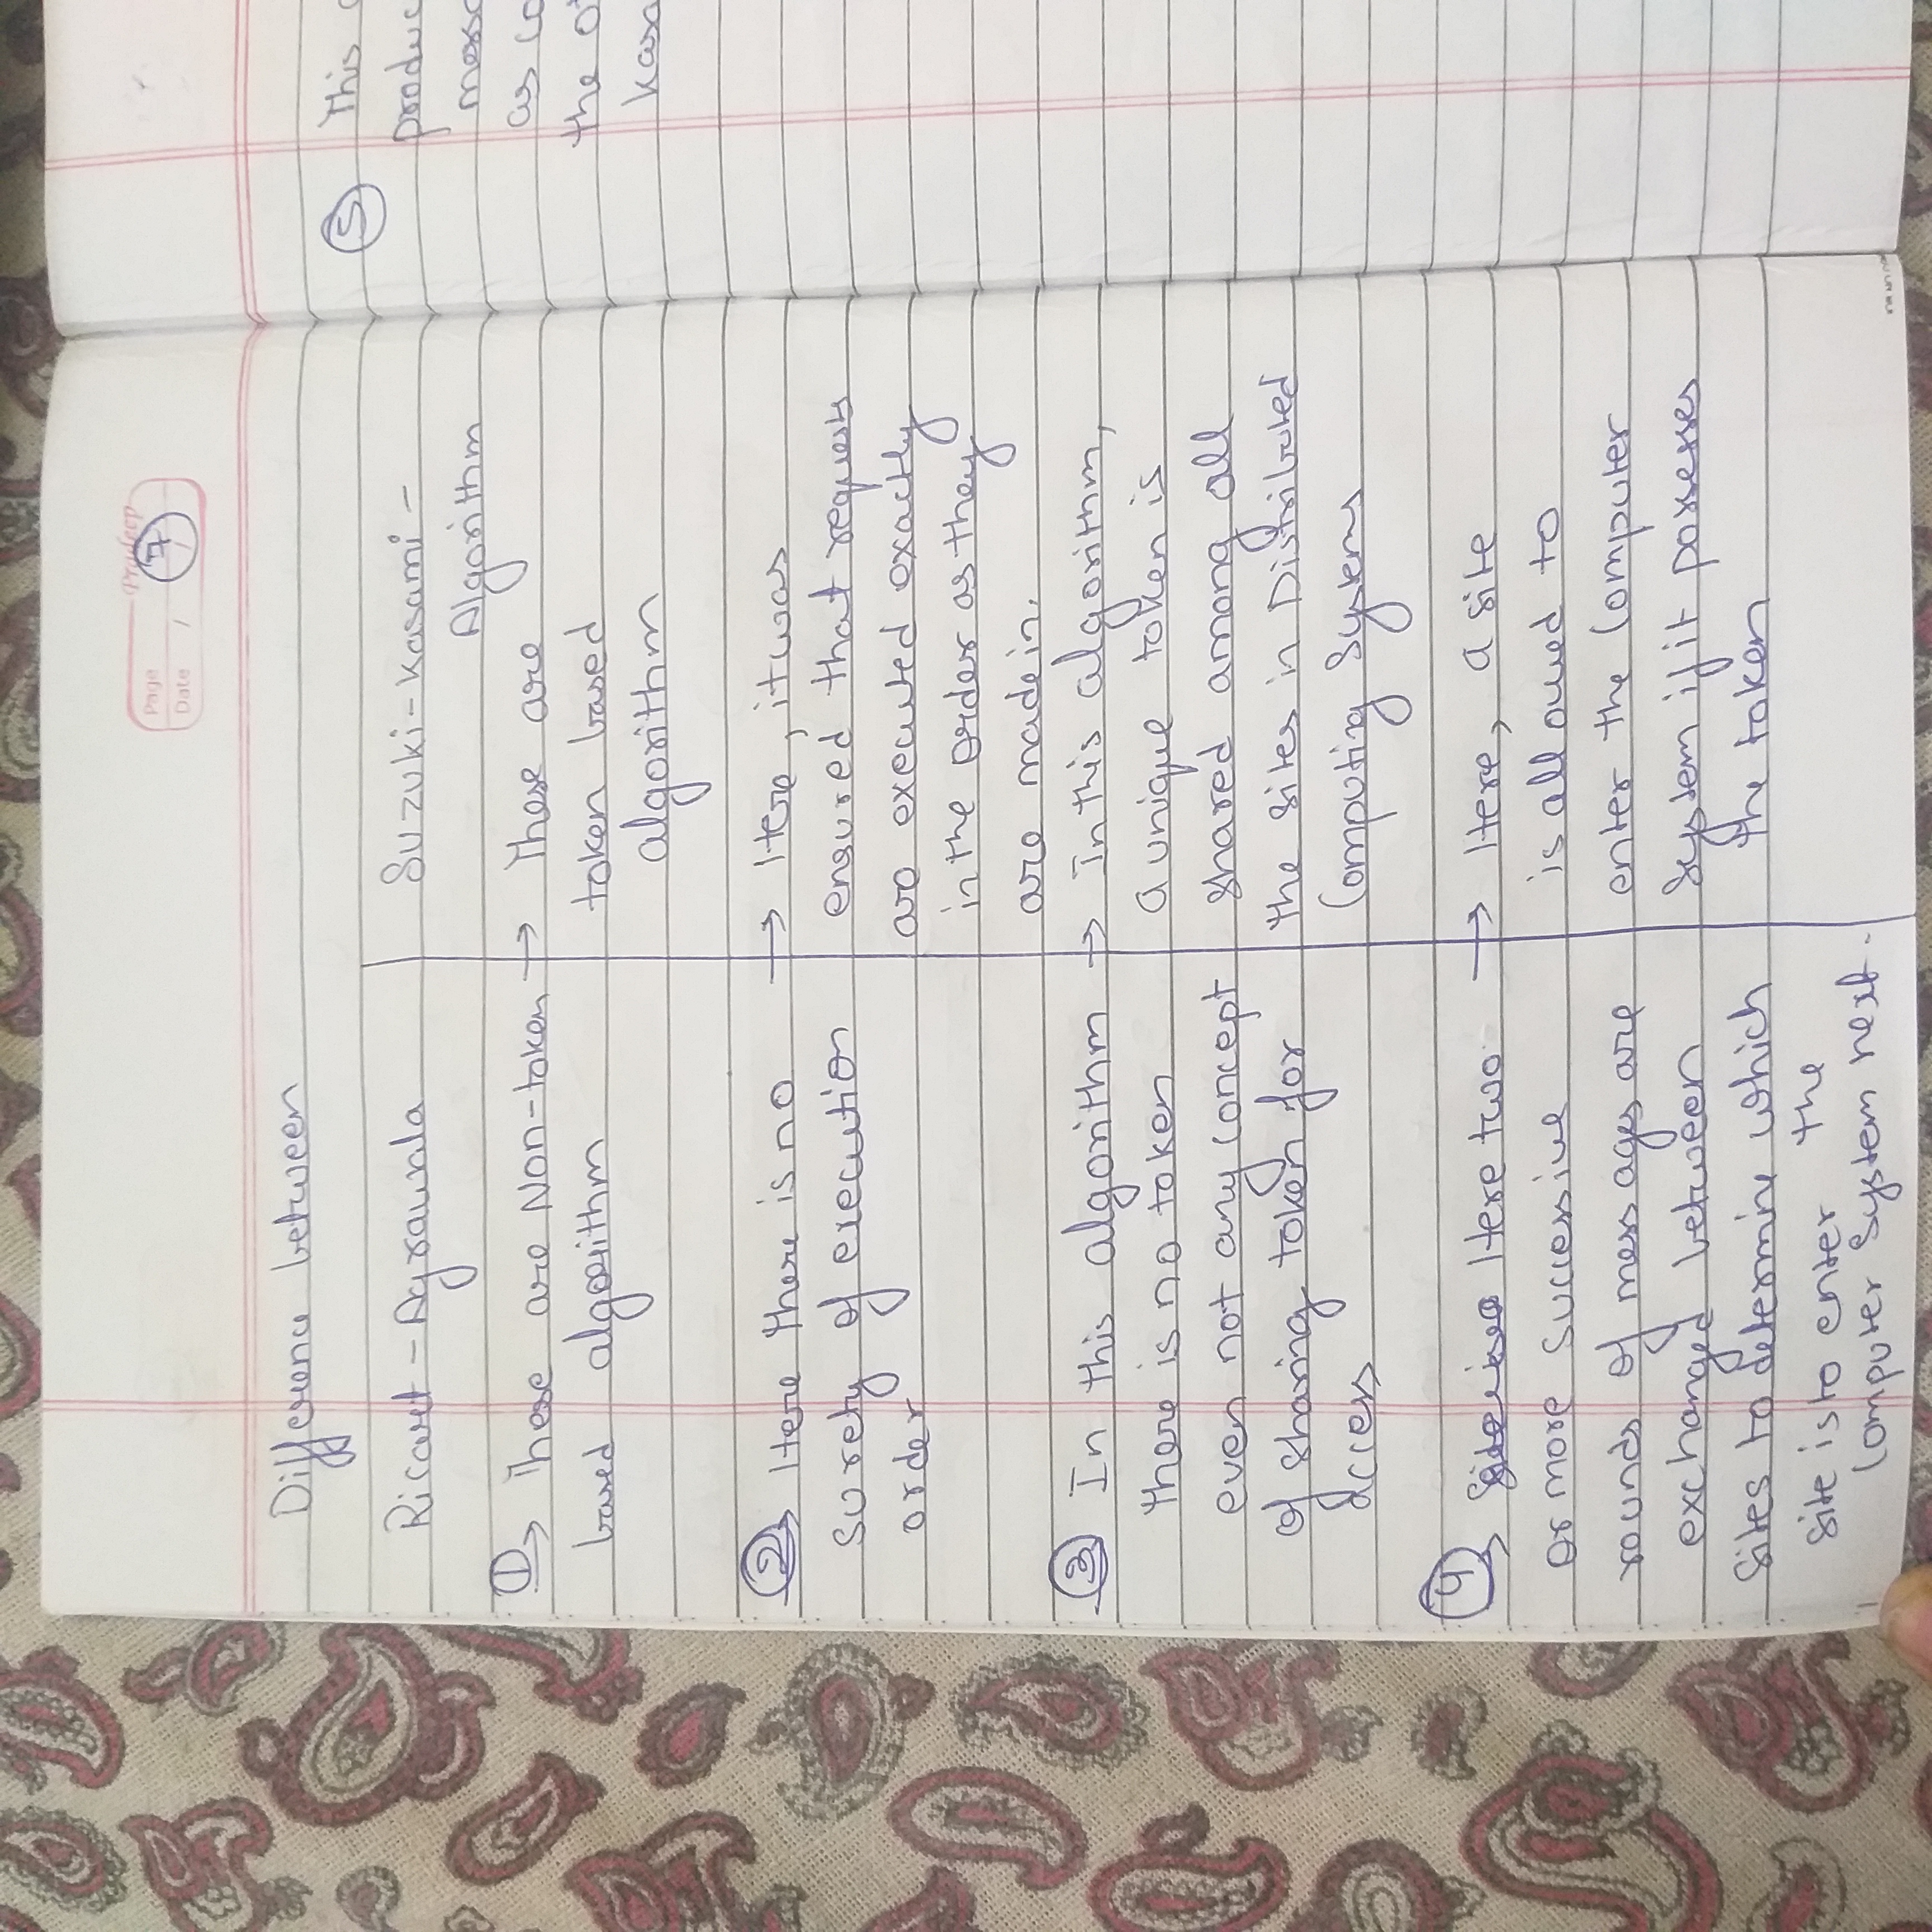 Pradeep
Page 7
Date / /
Difference between
Ricart - Agrawala
Suzuki-Kasami -
Algorithm
① → These are Non-token
based algorithm
→ These are
token based
algorithm
② → Here there is no
surety of execution
order
→ Here, it was
ensured that requests
are executed exactly
in the order as they
are made in.
③ → In this algorithm
there is no token
even not any concept
of sharing token for
access
→ In this algorithm,
a unique token is
shared among all
the sites in Distributed
Computing Systems
④ → Here two
or more successive
rounds of messages are
exchanged between
Sites to determine which
Site is to enter the
Computer System next.
→ Here, a site
is allowed to
enter the Computer
System if it posseses
the token
⑤ This
produc
mess
as co
the o
Kasa